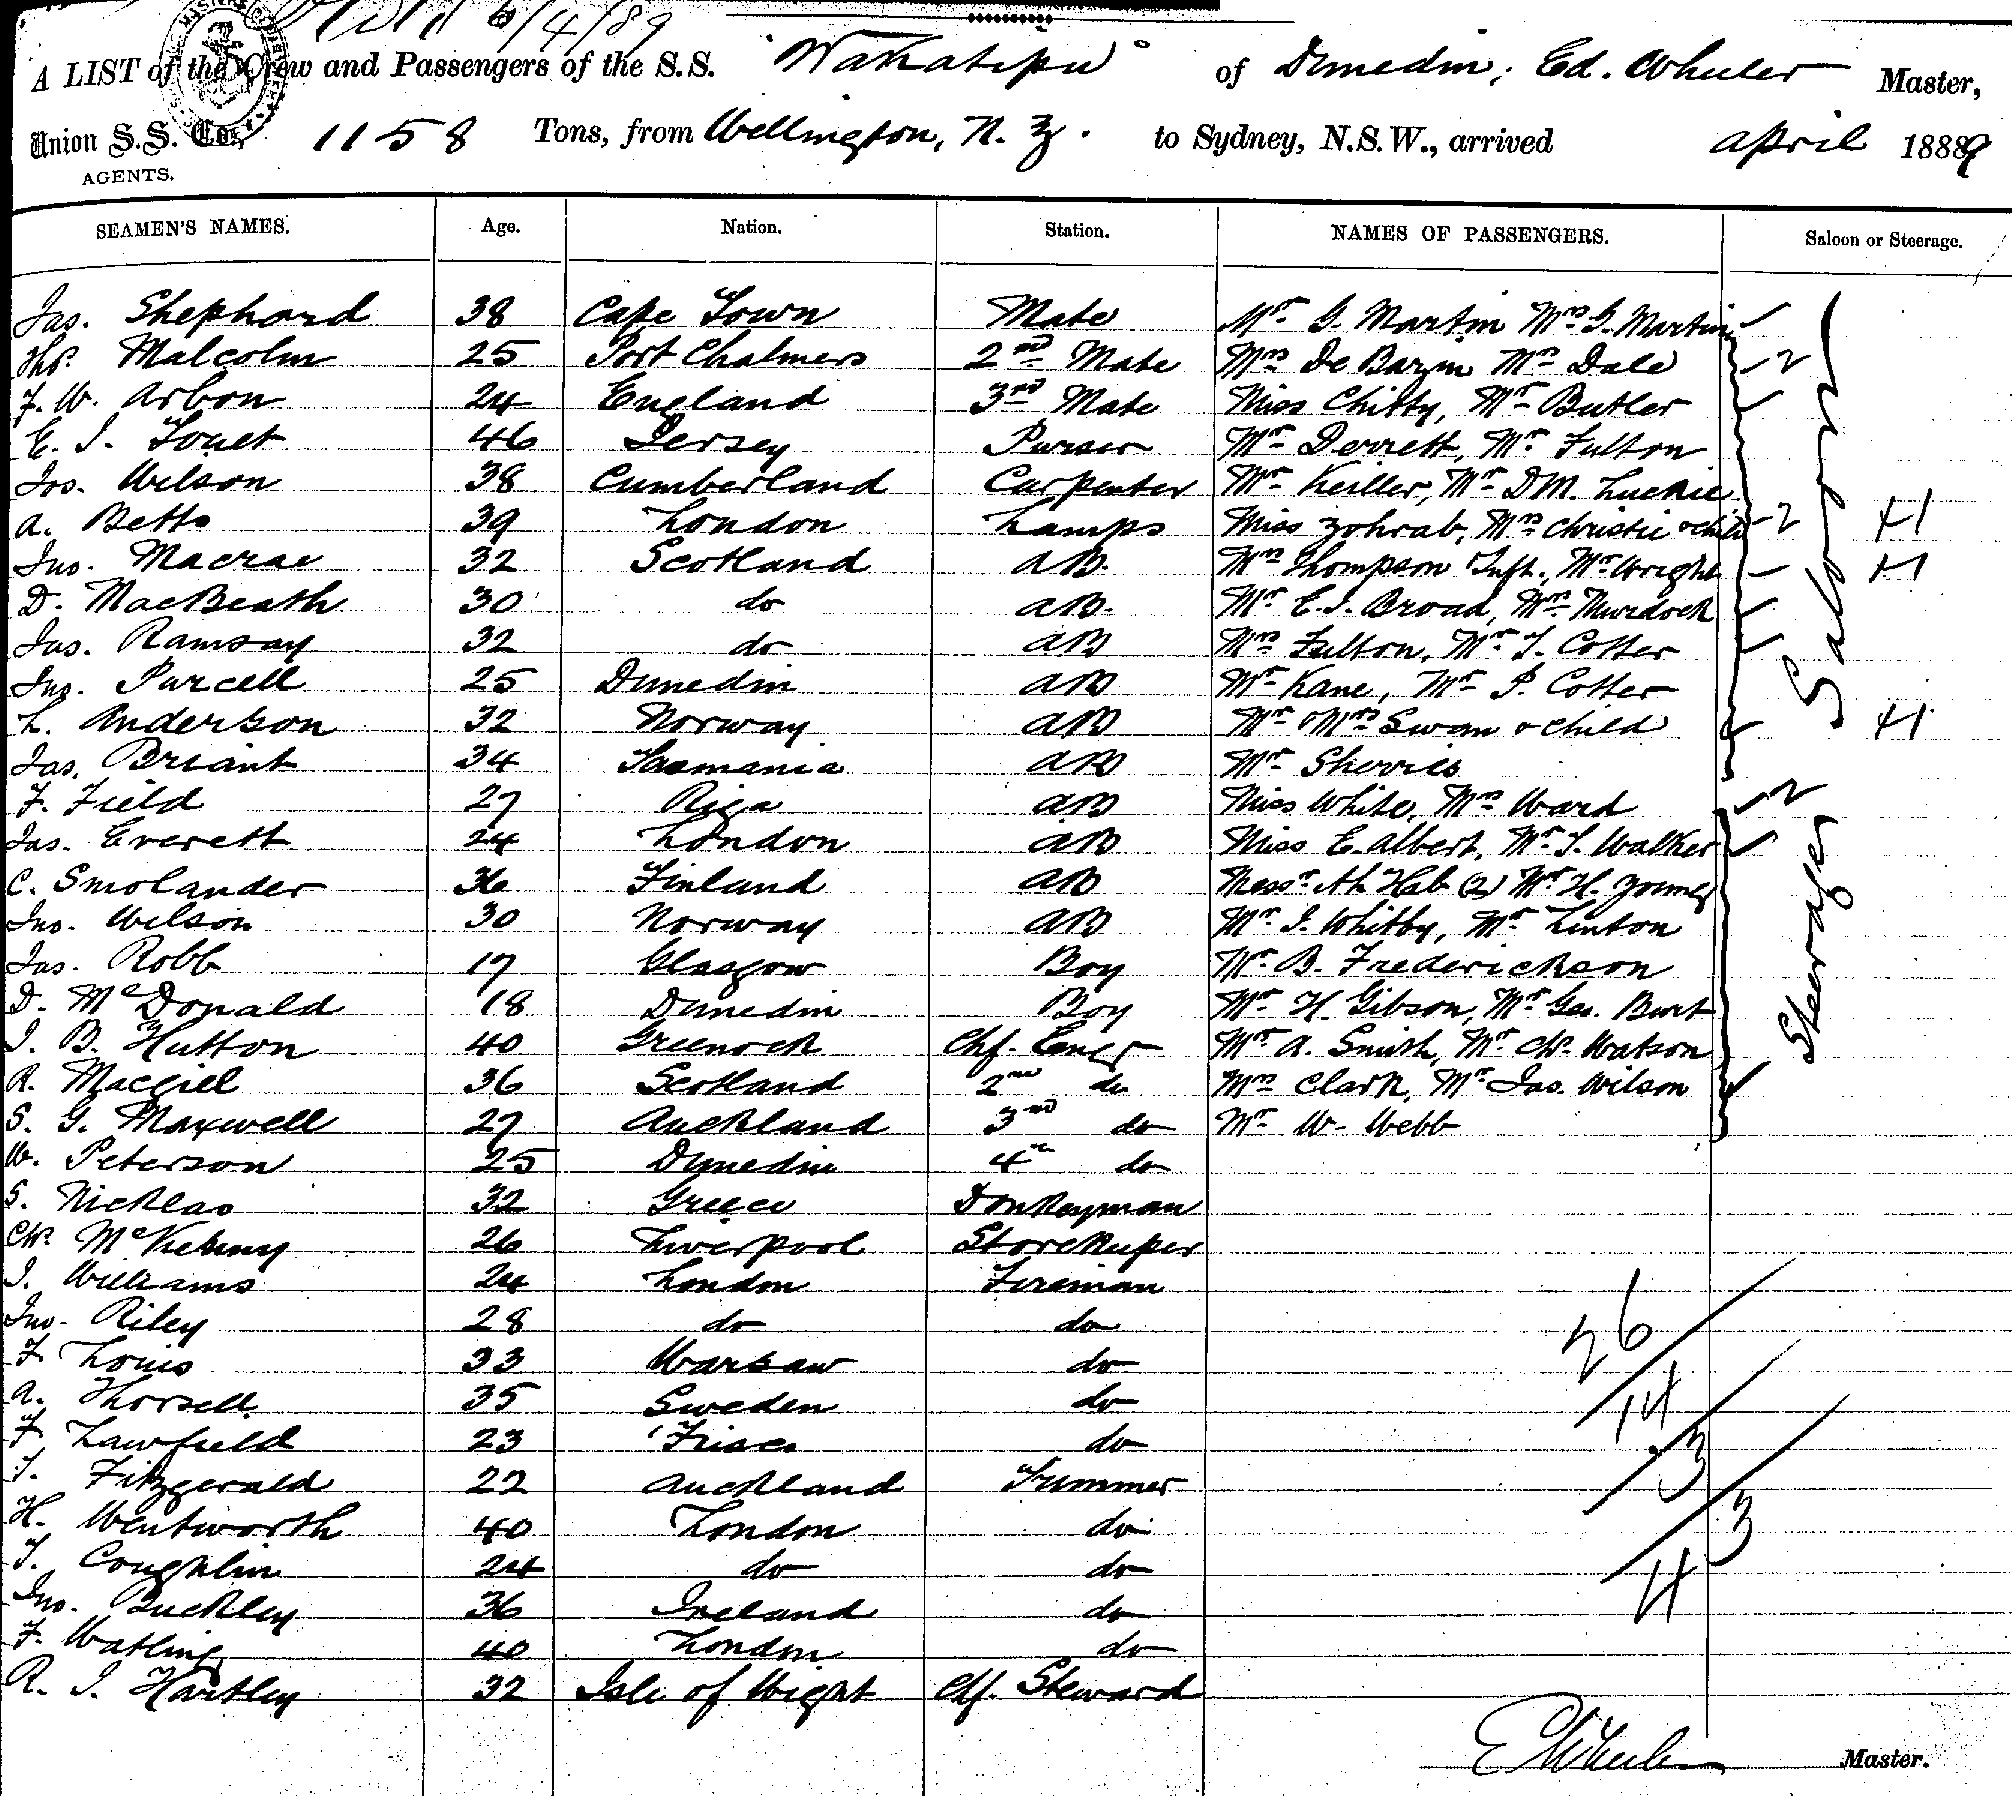 6/4/89
A LIST of the Crew and Passengers of the S.S. "Wakatipu" of Dunedin, Ed. Wheeler Master,
Union S.S. Co., 1158 Tons, from Wellington, N.Z. to Sydney, N.S.W., arrived April 1889
AGENTS.
SEAMEN'S NAMES. Age. Nation. Station. NAMES OF PASSENGERS. Saloon or Steerage.
Jas. Shephard 38 Cape Town Mate Mr G. Martin Mrs G. Martin
Thos. Malcolm 25 Port Chalmers 2nd Mate Mrs De Bazin Mrs Dale 2
F. W. Arbon 24 England 3rd Mate Miss Chitty, Mr Butler
E. J. Touet 46 Jersey Purser Mr Derrett, Mr Fulton
Jos. Wilson 38 Cumberland Carpenter Mr Keiller, Mr D M. Luckie
A. Betts 39 London Lamps Miss Zohrab, Mrs Christie & child 2 +1
Jno. Macrae 32 Scotland AB. Mrs Thompson Inft., Mr Wright +1
D. MacBeath 30 do AB. Mr E. J. Broad, Mrs Murdock
Jas. Ramsay 32 do AB Mrs Fulton, Mr T. Cotter
Jno. Purcell 25 Dunedin AB Mr Kane, Mr P. Cotter
L. Anderson 32 Norway AB Mr & Mrs Swan & child +1
Jas. Briant 34 Tasmania AB Mr Skovies
Saloon
F. Field 27 Riga AB Miss White, Mrs Ward 2
Jas. Everett 24 London AB Miss E. Albert, Mr T. Walker
C. Smolander 36 Finland AB Messrs Ah Hab (2) Mr H. Young
Jno. Wilson 30 Norway AB Mr J. Whitby, Mr Linton
Jas. Robb 17 Glasgow Boy Mr B. Frederickson
D. McDonald 18 Dunedin Boy Mr H. Gibson, Mr Geo. Burt
J. B. Hutton 40 Greenock Chf. Engr Mr A. Smith, Mr Ch. Watson
R. Macgill 36 Scotland 2nd do Mrs Clark, Mr Jas. Wilson
Steerage
S. G. Maxwell 27 Auckland 3rd do Mr W. Webb
W. Peterson 25 Dunedin 4th do
S. Nicklas 32 Greece Donkeyman
Ch. 26 Liverpool Storekeeper
J. Williams 24 London Fireman
Jno. Riley 28 do do
F. Louis 33 Warsaw do
A. Thorsell 35 Sweden do
F. Lawfield 23 'Frisco do
T. Fitzgerald 22 Auckland Trimmer
H. Wentworth 40 London do
T. Coughlin 24 do do
Jno. Buckley 36 Ireland do
F. Watling 40 London do
R. J. Hartley 32 Isle of Wight Chf. Steward
26
14
3
3
4
E Wheeler Master.